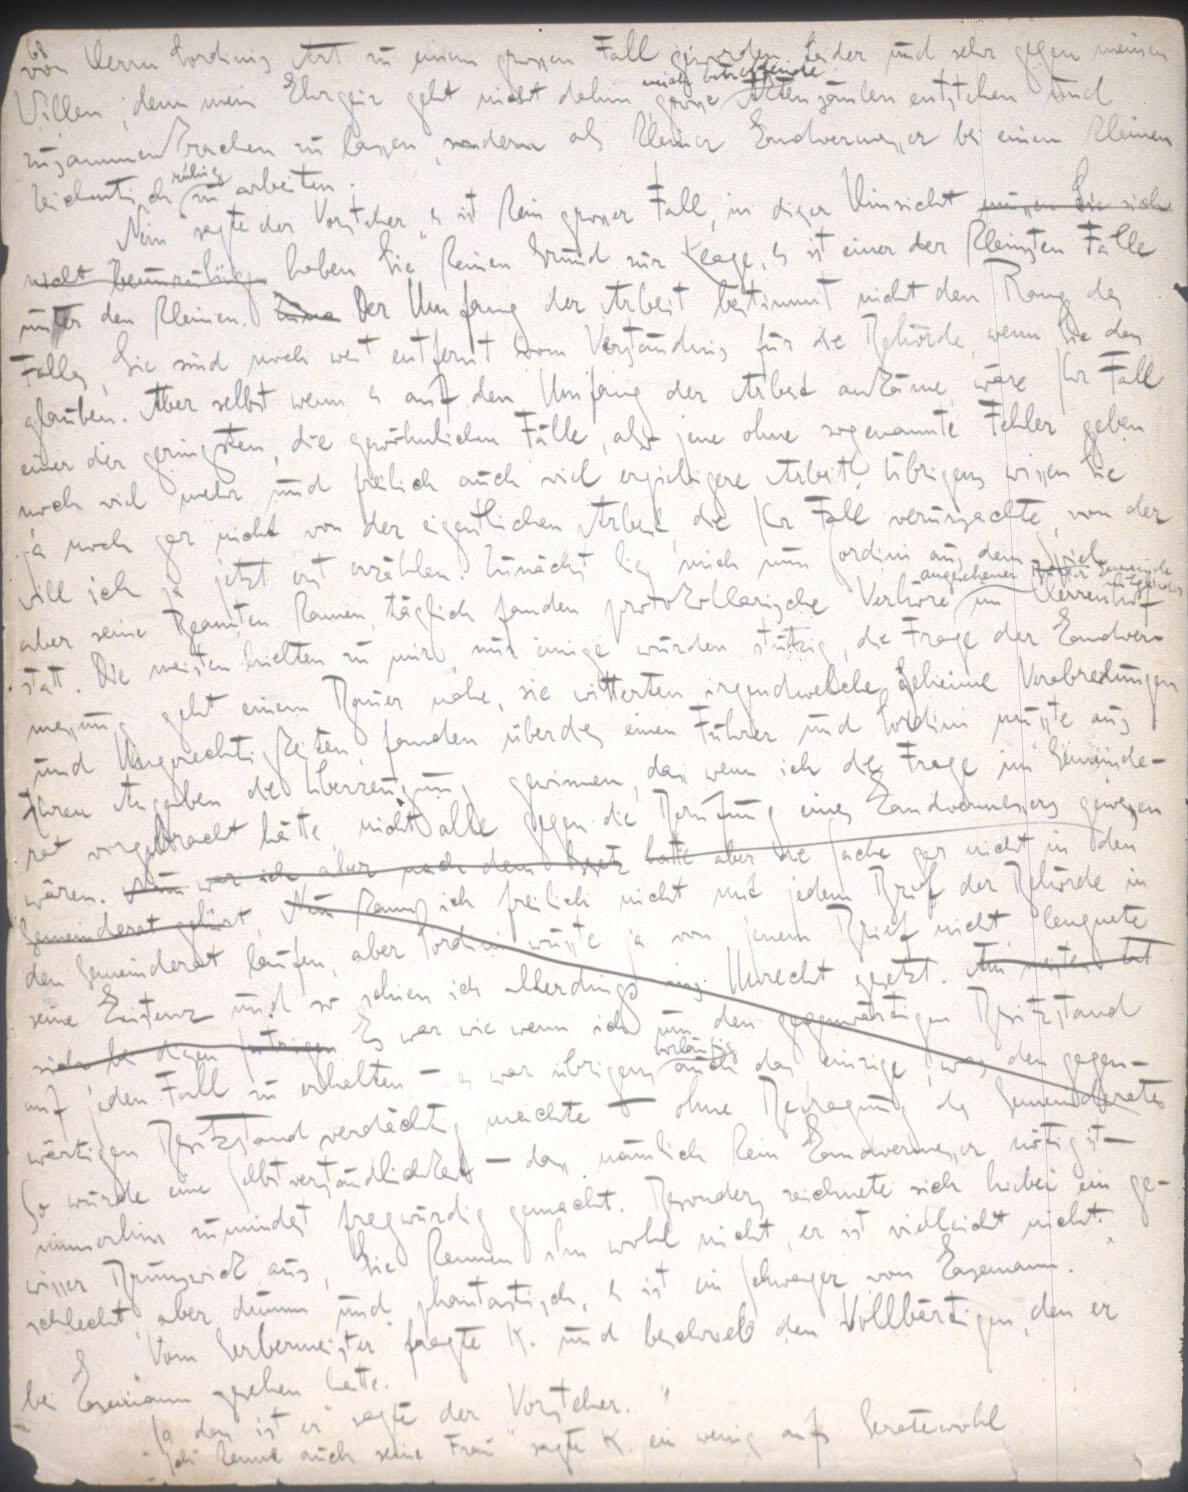 68
von Herrn Sordinis Art zu einem grossen Fall geworden. Leider und sehr gegen meinen
Willen; denn mein Ehrgeiz geht nicht dahin mich betreffende grosse Aktensäulen entstehen und
zusammenkrachen zu lassen, sondern als kleiner Landvermesser bei einem kleinen
Zeichentisch ruhig zu arbeiten."
"Nein" sagte der Vorsteher "es ist kein grosser Fall, in dieser Hinsicht müssen Sie sich
nicht beunruhigen haben Sie keinen Grund zur Klage, es ist einer der kleinsten Fälle
unter den kleinen. Der Umfang der Arbeit bestimmt nicht den Rang des
Falles, Sie sind noch weit entfernt vom Verständnis für die Behörde, wenn Sie das
glauben. Aber selbst wenn es auf den Umfang der Arbeit ankäme, wäre Ihr Fall
einer der geringsten, die gewöhnlichen Fälle, also jene ohne sogenannte Fehler geben
noch viel mehr und freilich auch viel ergiebigere Arbeit. Übrigens wissen Sie
ja noch gar nicht von der eigentlichen Arbeit, die Ihr Fall verursachte, von der
will ich ja jetzt erst erzählen. Zunächst liess mich nun Sordini aus dem Spiel
aber seine Beamten kamen, täglich fanden protokollarische Verhöre angesehener Gemeindemitglieder im Herrenhof
statt. Die meisten hielten zu mir, nur einige wurden stutzig, die Frage der Landver-
messung geht einem Bauer nahe, sie witterten irgendwelche geheime Verabredungen
und Ungerechtigkeiten, fanden überdies einen Führer und Sordini musste aus
ihren Angaben die Überzeugung gewinnen, dass wenn ich die Frage im Gemeinde-
rat vorgebracht hätte, nicht alle gegen die Berufung eines Landvermessers gewesen
wären. Nun war ich aber nach dem hatte aber die Sache gar nicht in den
Gemeinderat gehört, Nun kann ich freilich nicht mit jedem Brief der Behörde in
den Gemeinderat laufen, aber Sordini wusste ja von jenem Brief nicht leugnete
seine Existenz und so schien ich allerdings ins Unrecht gesetzt. Am meisten hat
sich bei diesen Intrigen Es war wie wenn ich um den gegenwärtigen Besitzstand
auf jeden Fall zu erhalten – es war übrigens vorläufig auch das einzige, was den gegen-
wärtigen Besitzstand verdächtig machte – ohne Befragung des Gemeinderates
So wurde eine Selbstverständlichkeit – dass nämlich kein Landvermesser nötig ist –
immerhin zumindest fragwürdig gemacht. Besonders zeichnete sich hiebei ein ge-
wisser Brunswick aus, Sie kennen ihn wohl nicht, er ist vielleicht nicht
schlecht, aber dumm und phantastisch, es ist ein Schwager von Lasemann."
"Vom Gerbermeister" fragte K. und beschrieb den Vollbärtigen, den er
bei Lasemann gesehen hatte.
"Ja das ist er" sagte der Vorsteher.
"Ich kenne auch seine Frau" sagte K. ein wenig aufs Geratewohl